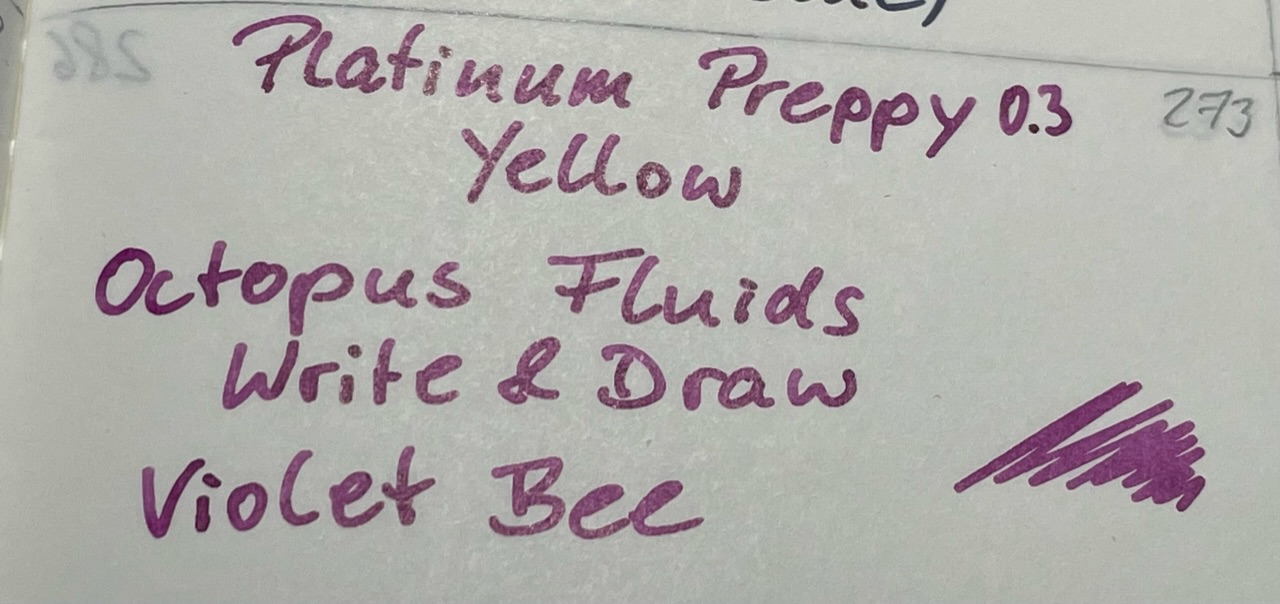 Platinum Preppy 0.3 273
Yellow
Octopus Fluids
Write & Draw
Violet Bee